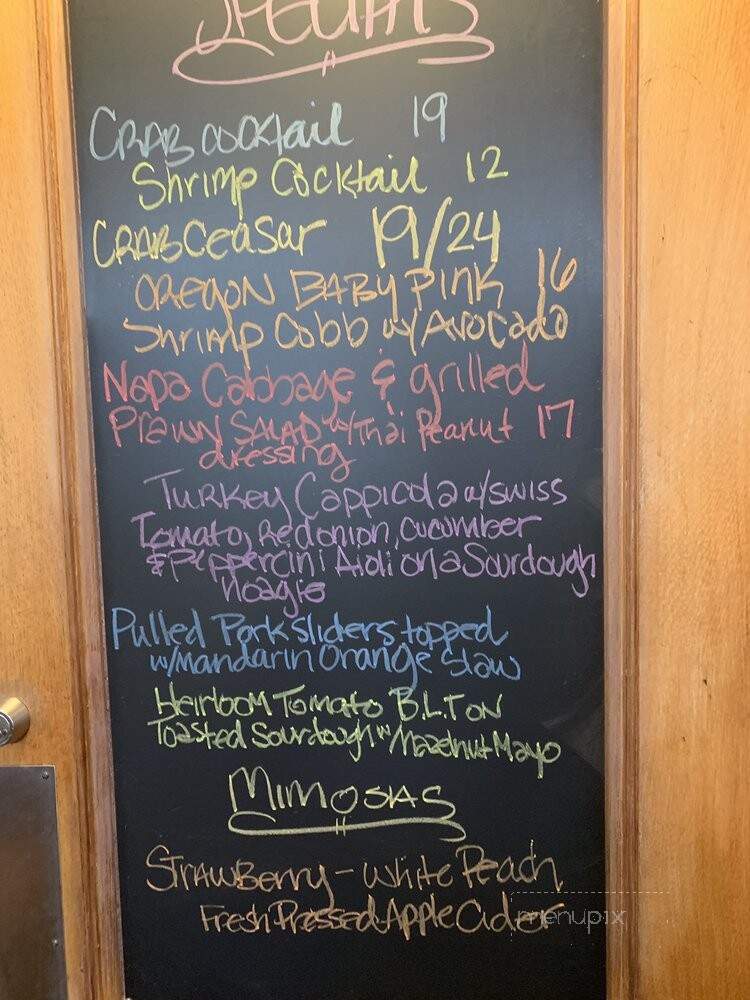 SPECIALS
CRAB COCKTAIL 19
Shrimp Cocktail 12
CRAB Ceasar 19/24
OREGON BABY PINK 16
Shrimp Cobb w/ Avocado
Napa Cabbage & grilled
PRAWN SALAD w/Thai Peanut 17
dressing
TURKEY Cappicola w/swiss
Tomato, Red onion, cucumber
& Peppercini Aioli on a Sourdough
hoagie
Pulled Pork Sliders topped
w/Mandarin Orange Slaw
Heirloom Tomato B.L.T on
Toasted Sourdough w/Hazelnut Mayo
MIMOSAS
STRAWBERRY - White Peach
Fresh Pressed Apple Cider
menupix